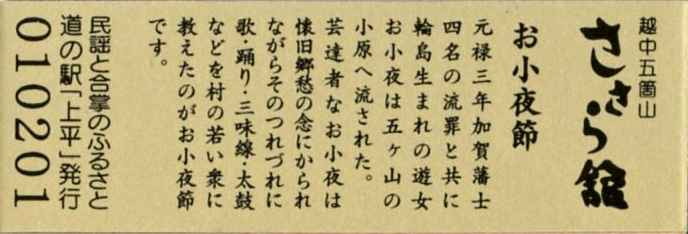 越中五箇山
ささら館
お小夜節
元禄三年加賀藩士
四名の流罪と共に
輪島生まれの遊女
お小夜は五ヶ山の
小原へ流された。
芸達者なお小夜は
懐旧郷愁の念にかられ
ながらそのつれづれに
歌・踊り・三味線・太鼓
などを村の若い衆に
教えたのがお小夜節
です。
民謡と合掌のふるさと
道の駅「上平」発行
010201